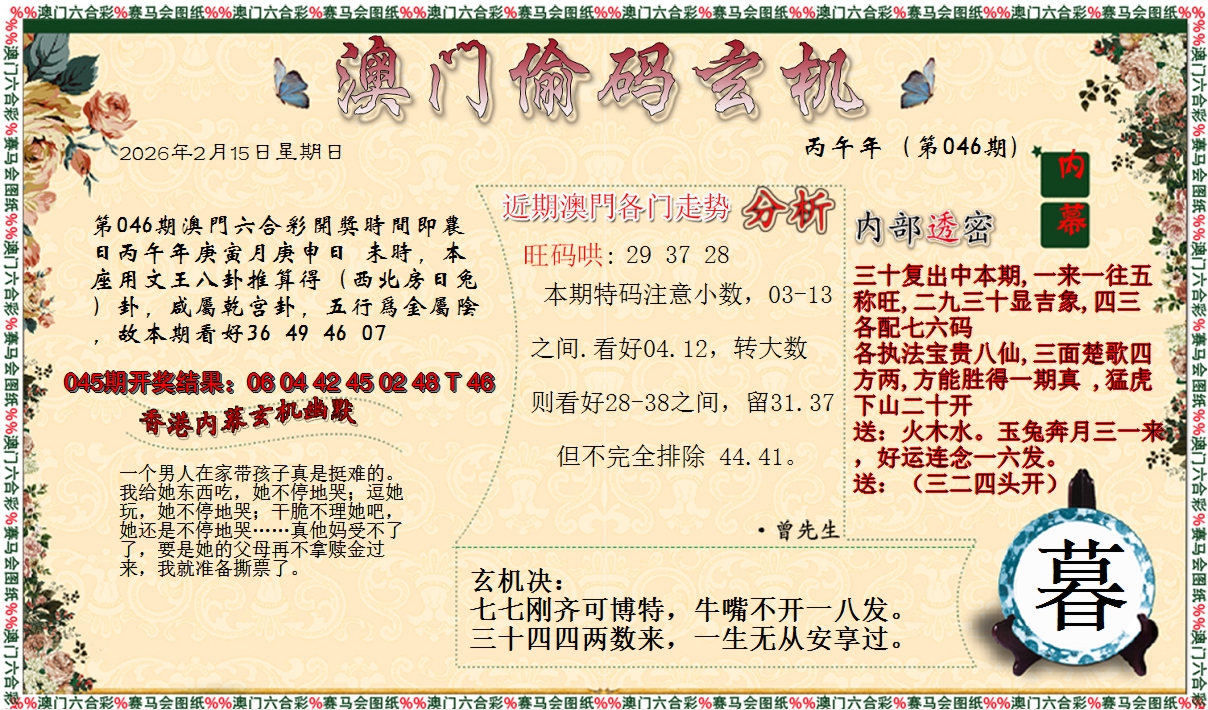 %%澳门六合彩%赛马会图纸%%澳门六合彩%赛马会图纸%%澳门六合彩%赛马会图纸%%澳门六合彩%赛马会图纸%%澳门六合彩%赛马会图纸%%澳门六合彩%赛马会图纸%%
澳门偷码玄机
2026年2月15日星期日
丙午年（第046期）
内幕
第046期澳門六合彩開獎時間即農
日丙午年庚寅月庚申日 未時，本
座用文王八卦推算得（西北房日兔
）卦，咸屬乾宫卦，五行爲金屬陰
，故本期看好36 49 46 07
045期开奖结果：06 04 42 45 02 48 T 46
香港内幕玄机幽默
一个男人在家带孩子真是挺难的。
我给她东西吃，她不停地哭；逗她
玩，她不停地哭；干脆不理她吧，
她还是不停地哭……真他妈受不了
了，要是她的父母再不拿赎金过
来，我就准备撕票了。
近期澳門各门走势 分析
旺码哄: 29 37 28
本期特码注意小数，03-13
之间.看好04.12，转大数
则看好28-38之间，留31.37
但不完全排除 44.41。
·曾先生
内部透密
三十复出中本期,一来一往五
称旺,二九三十显吉象,四三
各配七六码
各执法宝贵八仙,三面楚歌四
方两,方能胜得一期真 ,猛虎
下山二十开
送：火木水。玉兔奔月三一来
，好运连念一六发。
送：（三二四头开）
玄机决：
七七刚齐可博特，牛嘴不开一八发。
三十四四两数来，一生无从安享过。
暮
%%澳门六合彩%赛马会图纸%%澳门六合彩%赛马会图纸%%澳门六合彩%赛马会图纸%%澳门六合彩%赛马会图纸%%澳门六合彩%赛马会图纸%%澳门六合彩%赛马会图纸%%